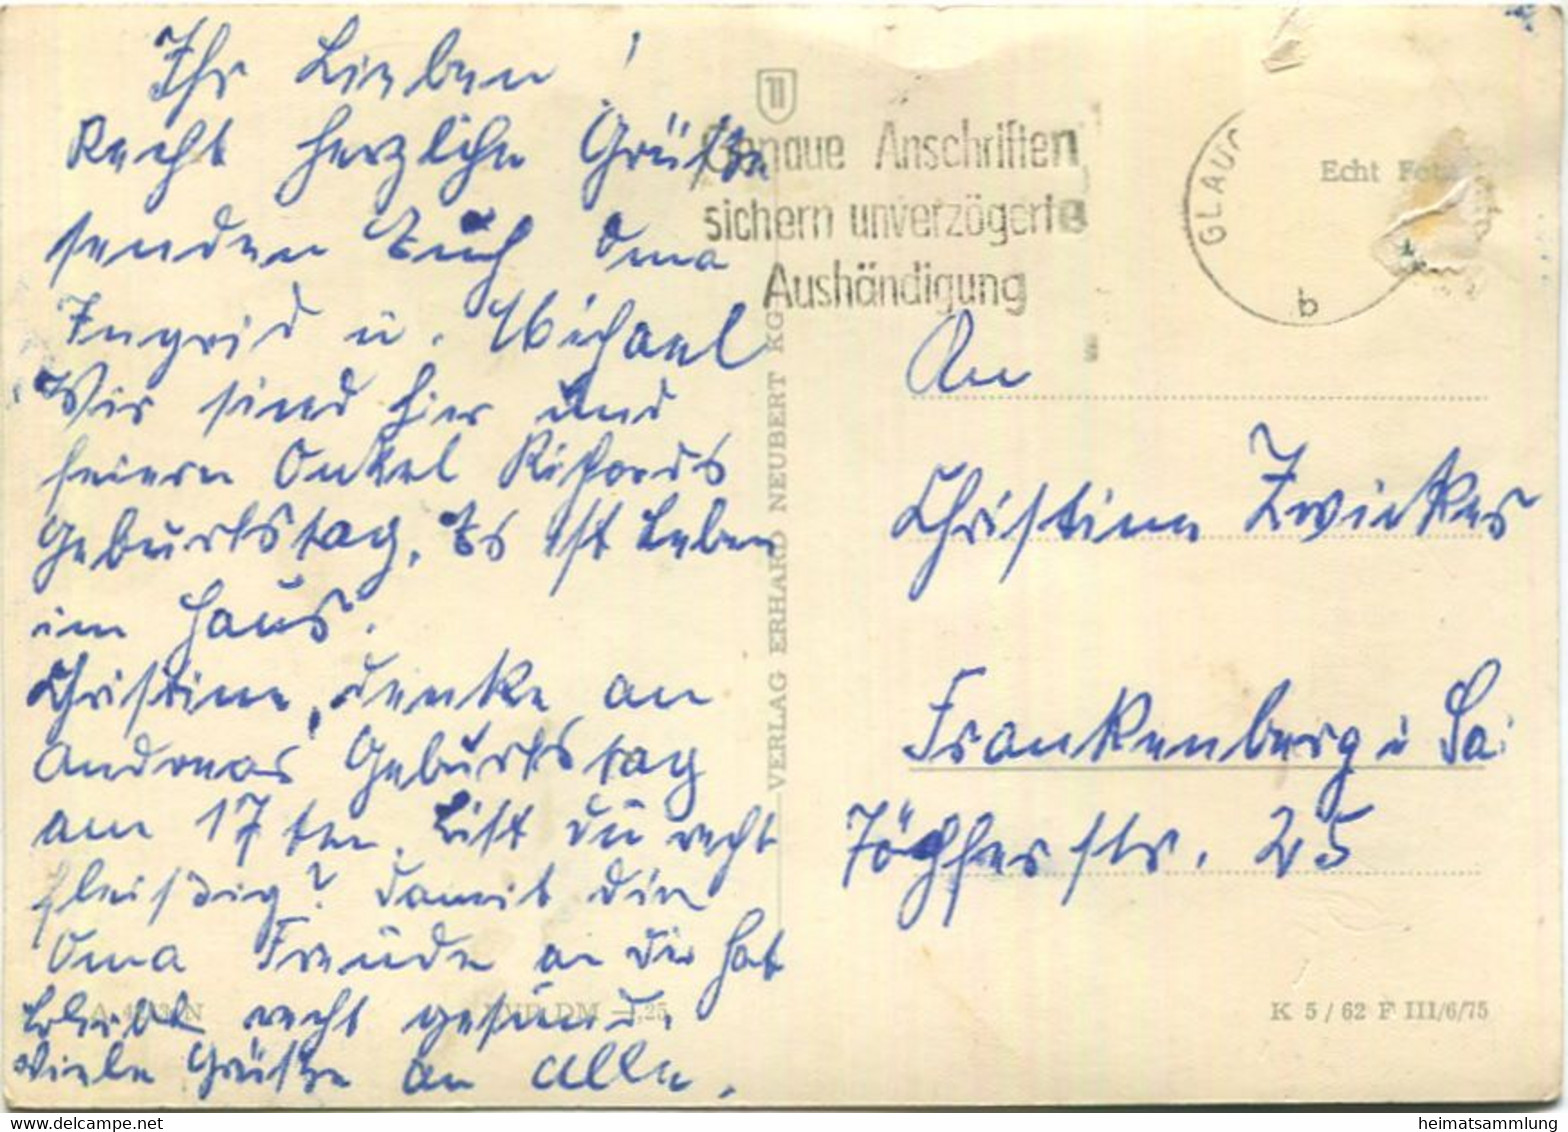 Ihr Lieben!
Recht herzliche Grüße
senden Euch Oma
Ingrid u. Michael
Wir sind hier und
feiern Onkel Richards
Geburtstag. Es ist Leben
im Haus.
Christine, denke an
Andreas Geburtstag
am 17ten. Bist du recht
fleißig? Damit die
Oma Freude an dir hat
bleibt recht gesund.
Viele Grüße an alle.
A N
EVP DM -,25
VERLAG ERHARD NEUBERT KG
Genaue Anschriften
sichern unverzögerte
Aushändigung
GLAUC
b
Echt Foto
An
Christine Zwicker
Frankenberg i Sa.
25
K 5 / 62 F III/6/75
heimatsammlung.com